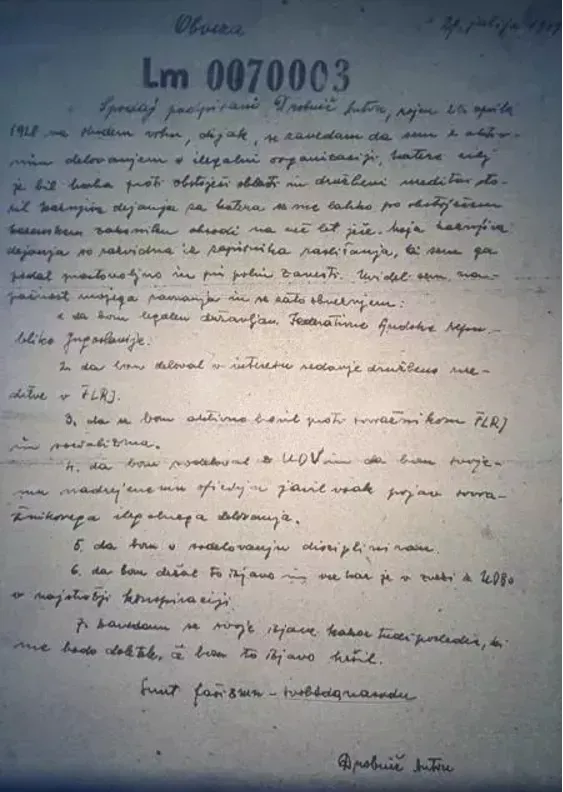 Obveza
29. julija 19
Lm 0070003
Spodaj podpisani Drobnič Anton, rojen 26. aprila
1928 na Hudem vrhu, dijak, se zavedam da sem z aktiv-
nim delovanjem v ilegalni organizaciji, katere cilj
je bil borba proti obstoječi oblasti in družbeni ureditvi sto-
ril kaznjiva dejanja za katera se me lahko po obstoječem
kazenskem zakoniku obsodi na več let ječe. Moja kaznjiva
dejanja so razvidna iz zapisnika zaslišanja, ki sem ga
podal prostovoljno in pri polni zavesti. Uvidel sem na-
pačnost mojega ravnanja in se zato obvezujem:
1. da bom legalen državljan Federativne ljudske repu-
blike Jugoslavije.
2. da bom deloval v interesu sedanje družbene ure-
ditve v FLRJ.
3. da se bom aktivno boril proti sovražnikom FLRJ
in socializma.
4. da bom sodeloval z UDV in da bom svoje-
mu nadrejenemu oficirju javil vsak pojav sovra-
žnikovega ilegalnega delovanja.
5. da bom v sodelovanju discipliniran.
6. da bom držal to izjavo in vse kar je v zvezi z UDBo
v najstrožji konspiraciji.
7. Zavedam se svoje izjave kakor tudi posledic, ki
me bodo doletele, če bom to izjavo kršil.
Smrt fašizmu - svoboda narodu
Drobnič Anton